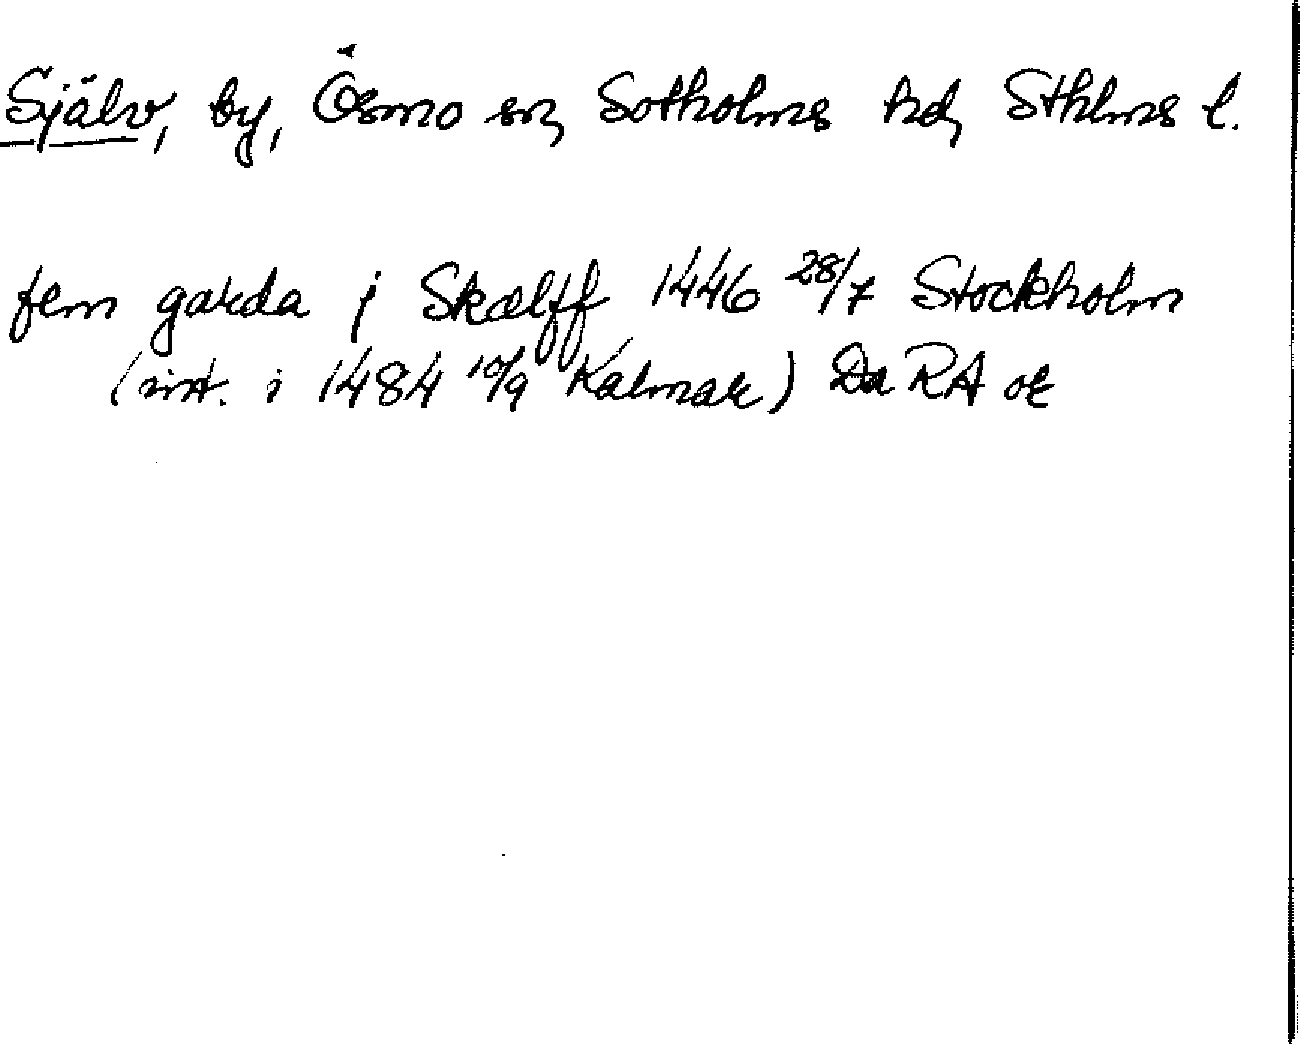 Själv, by, Ösmo sn, Sotholms hd, Sthlms l.
fem garda j Skælff 1446 28/7 Stockholm
(int. i 1484 10/9 Kalmar) Da RA or